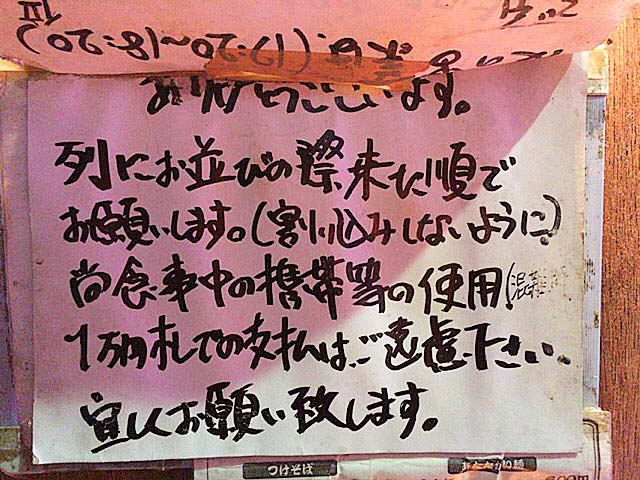 ありがとうございます。
列にお並びの際来た順で
お願いします。(割り込みしないように)
尚食事中の携帯等の使用(混
1万円札での支払はご遠慮下さい
宜しくお願い致します。
つけそば
あたたかい麺